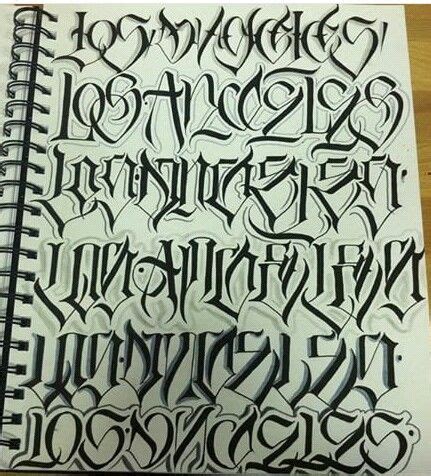 LOS ANGELES
LOS ANGELES
LOS·ANGELES·
LOS·ANGELES
LOS·ANGELES·
LOS·ANGELES·